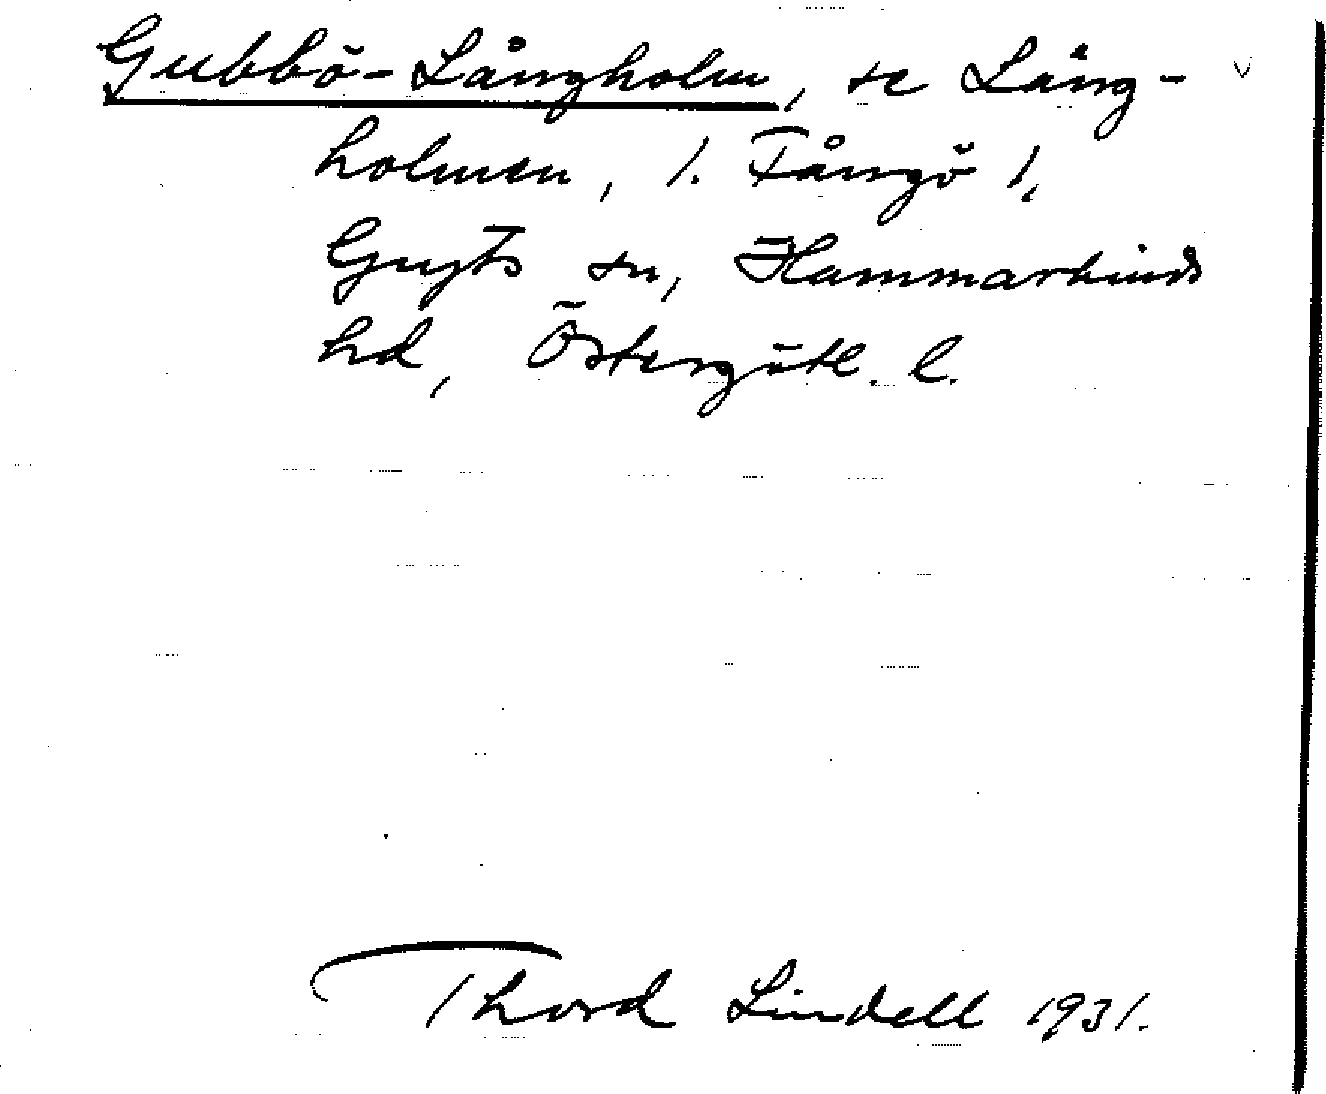 Gubbö-Långholm, se Lång-
holmen, 1. Fångö 1,
Gryts sn, Hammarkinds
hd, Östergötl. l.
Thord Lindell 1931.